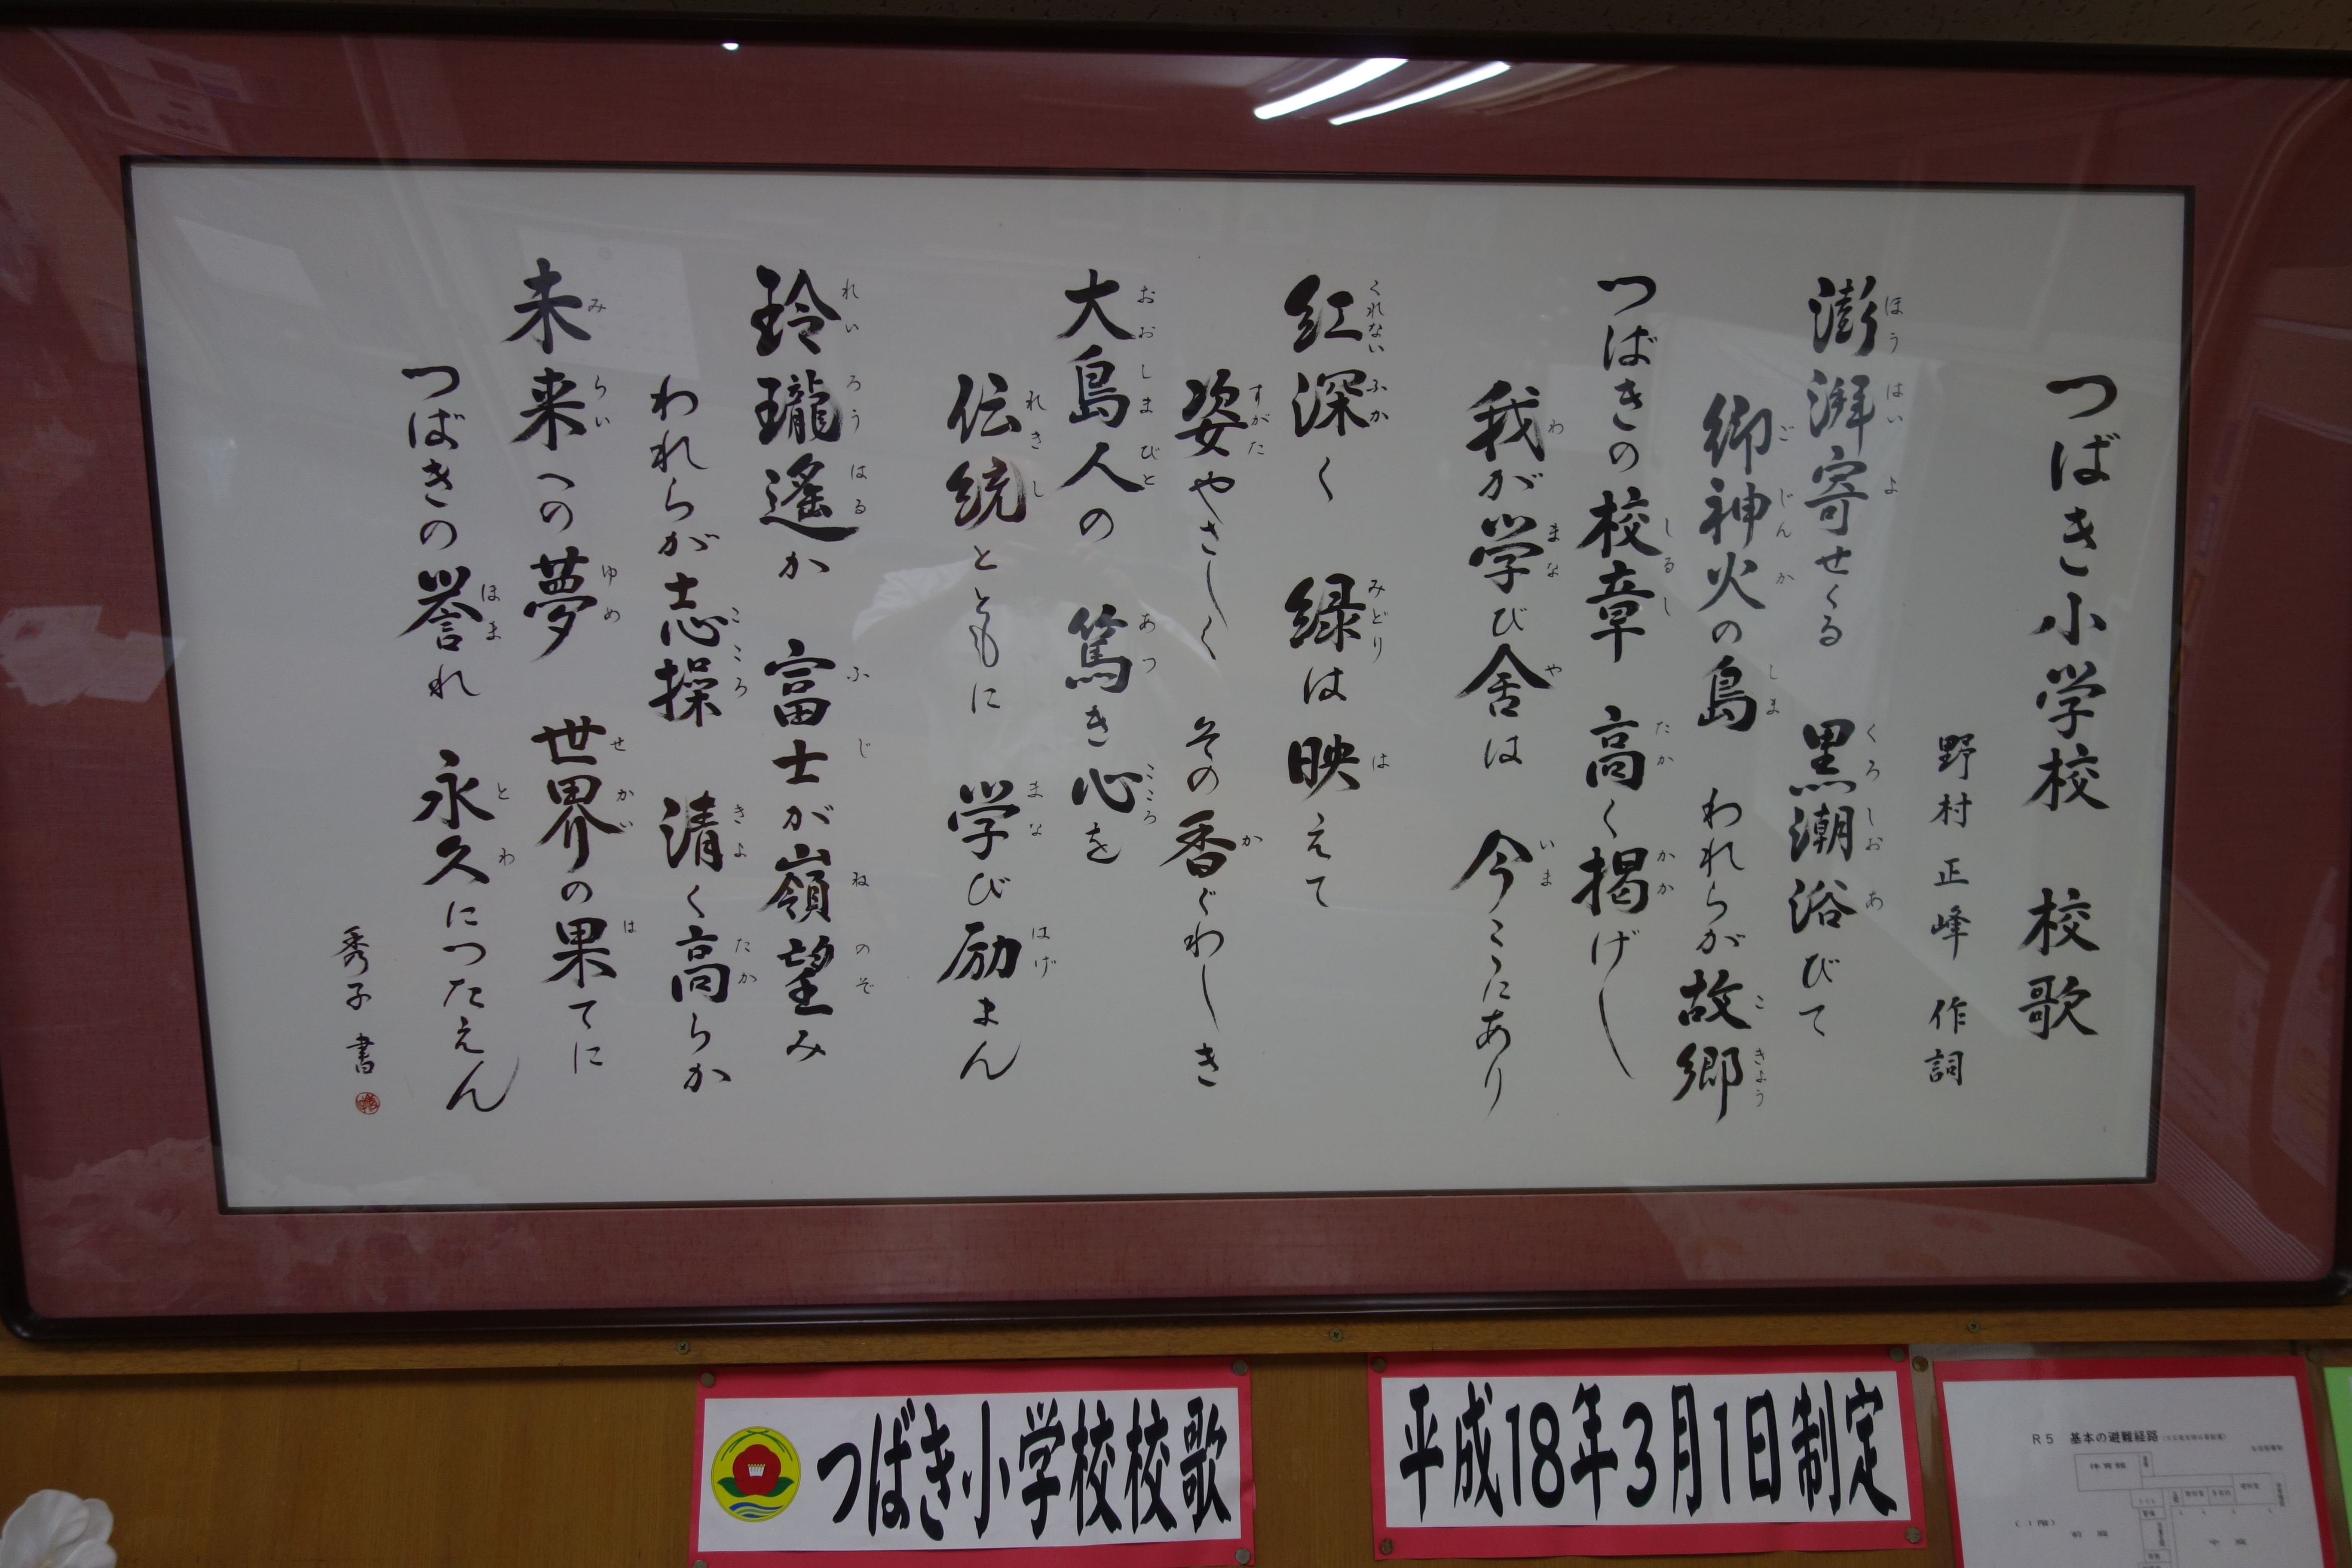 つばき小学校 校歌
野村正峰 作詞
澎湃寄せくる 黒潮浴びて
御神火の島 われらが故郷
つばきの校章 高く掲げし
我が学び舎は 今こゝにあり
紅深く 緑は映えて
姿やさしく その香ぐわしき
大島人の 篤き心を
伝統とともに 学び励まん
玲瓏遙か 富士が嶺望み
われらが志操 清く高らか
未来への夢 世界の果てに
つばきの誉れ 永久につたえん
秀子 書
つばき小学校校歌
平成18年3月1日制定
R5 基本の避難経路
体育館
(1階)
前庭
中庭